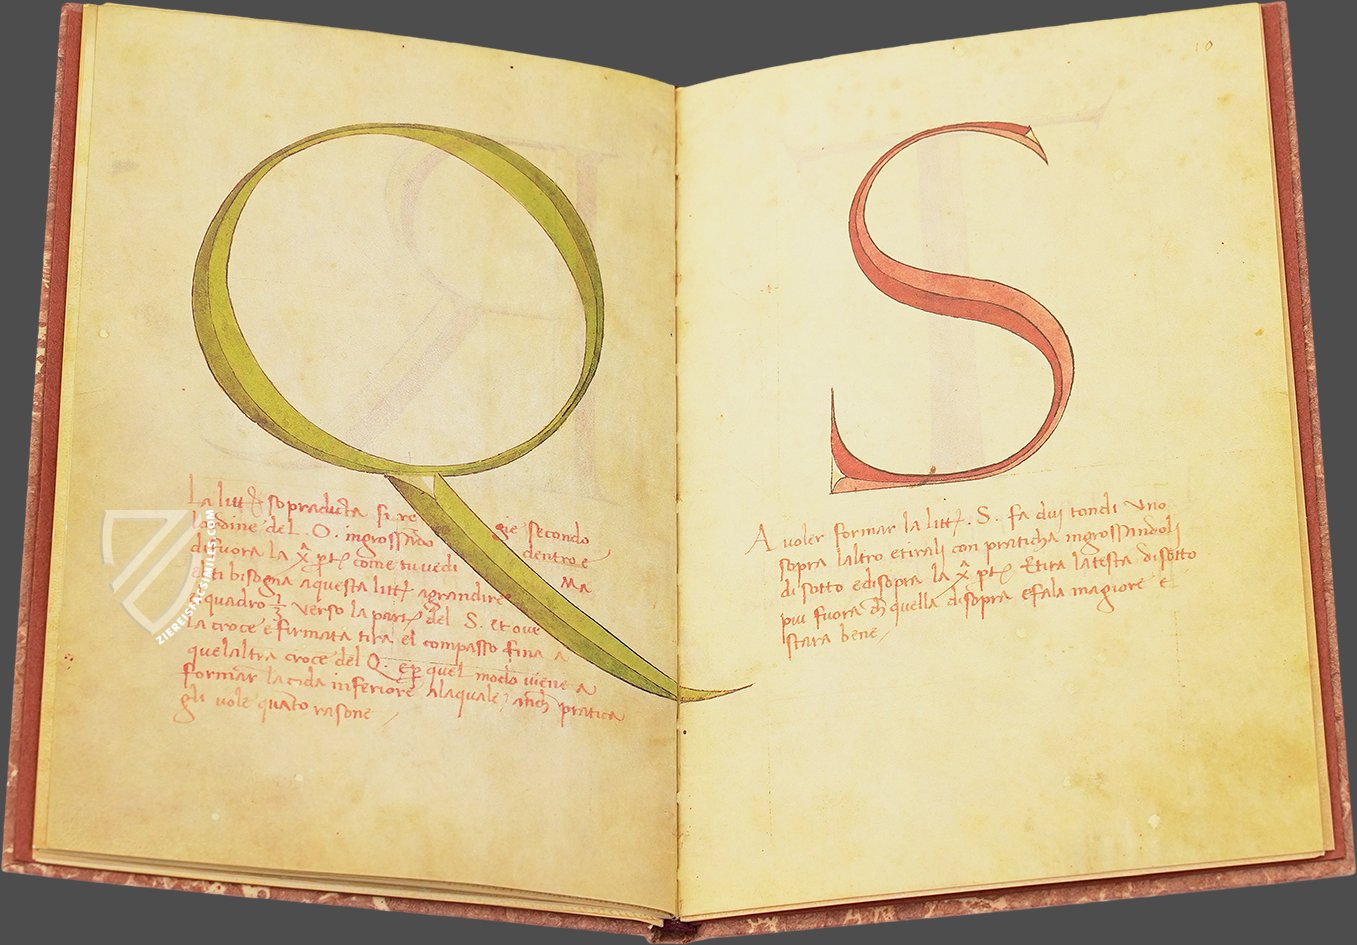 Q
La litt̃ Q̃ sopraducta si re gie secondo
lordine del . O . ingrossãdo dentro e
di fuora la x̂ ptẽ come tu vedi Ma
ti bisogna aquesta litt̃ agrandire
quadro 1/3 verso la parte del S. et ove
la croce e firmata tira el compasso fina a
quel altra croce del Q. e p̱ quel modo viene a
formar la coda inferiore alaquale pratica
gli vole quãto rasone
10
S
A voler formar la litt̃ . S . fa duj tondi uno
sopra laltro e tirali con praticha ingrossandoli
di sotto e disopra la x̂ ptẽ Et tira la testa disotto
piu fuora ch̃ quella disopra e fala magiore e
stara bene
ZIEREISFACSIMILES.COM